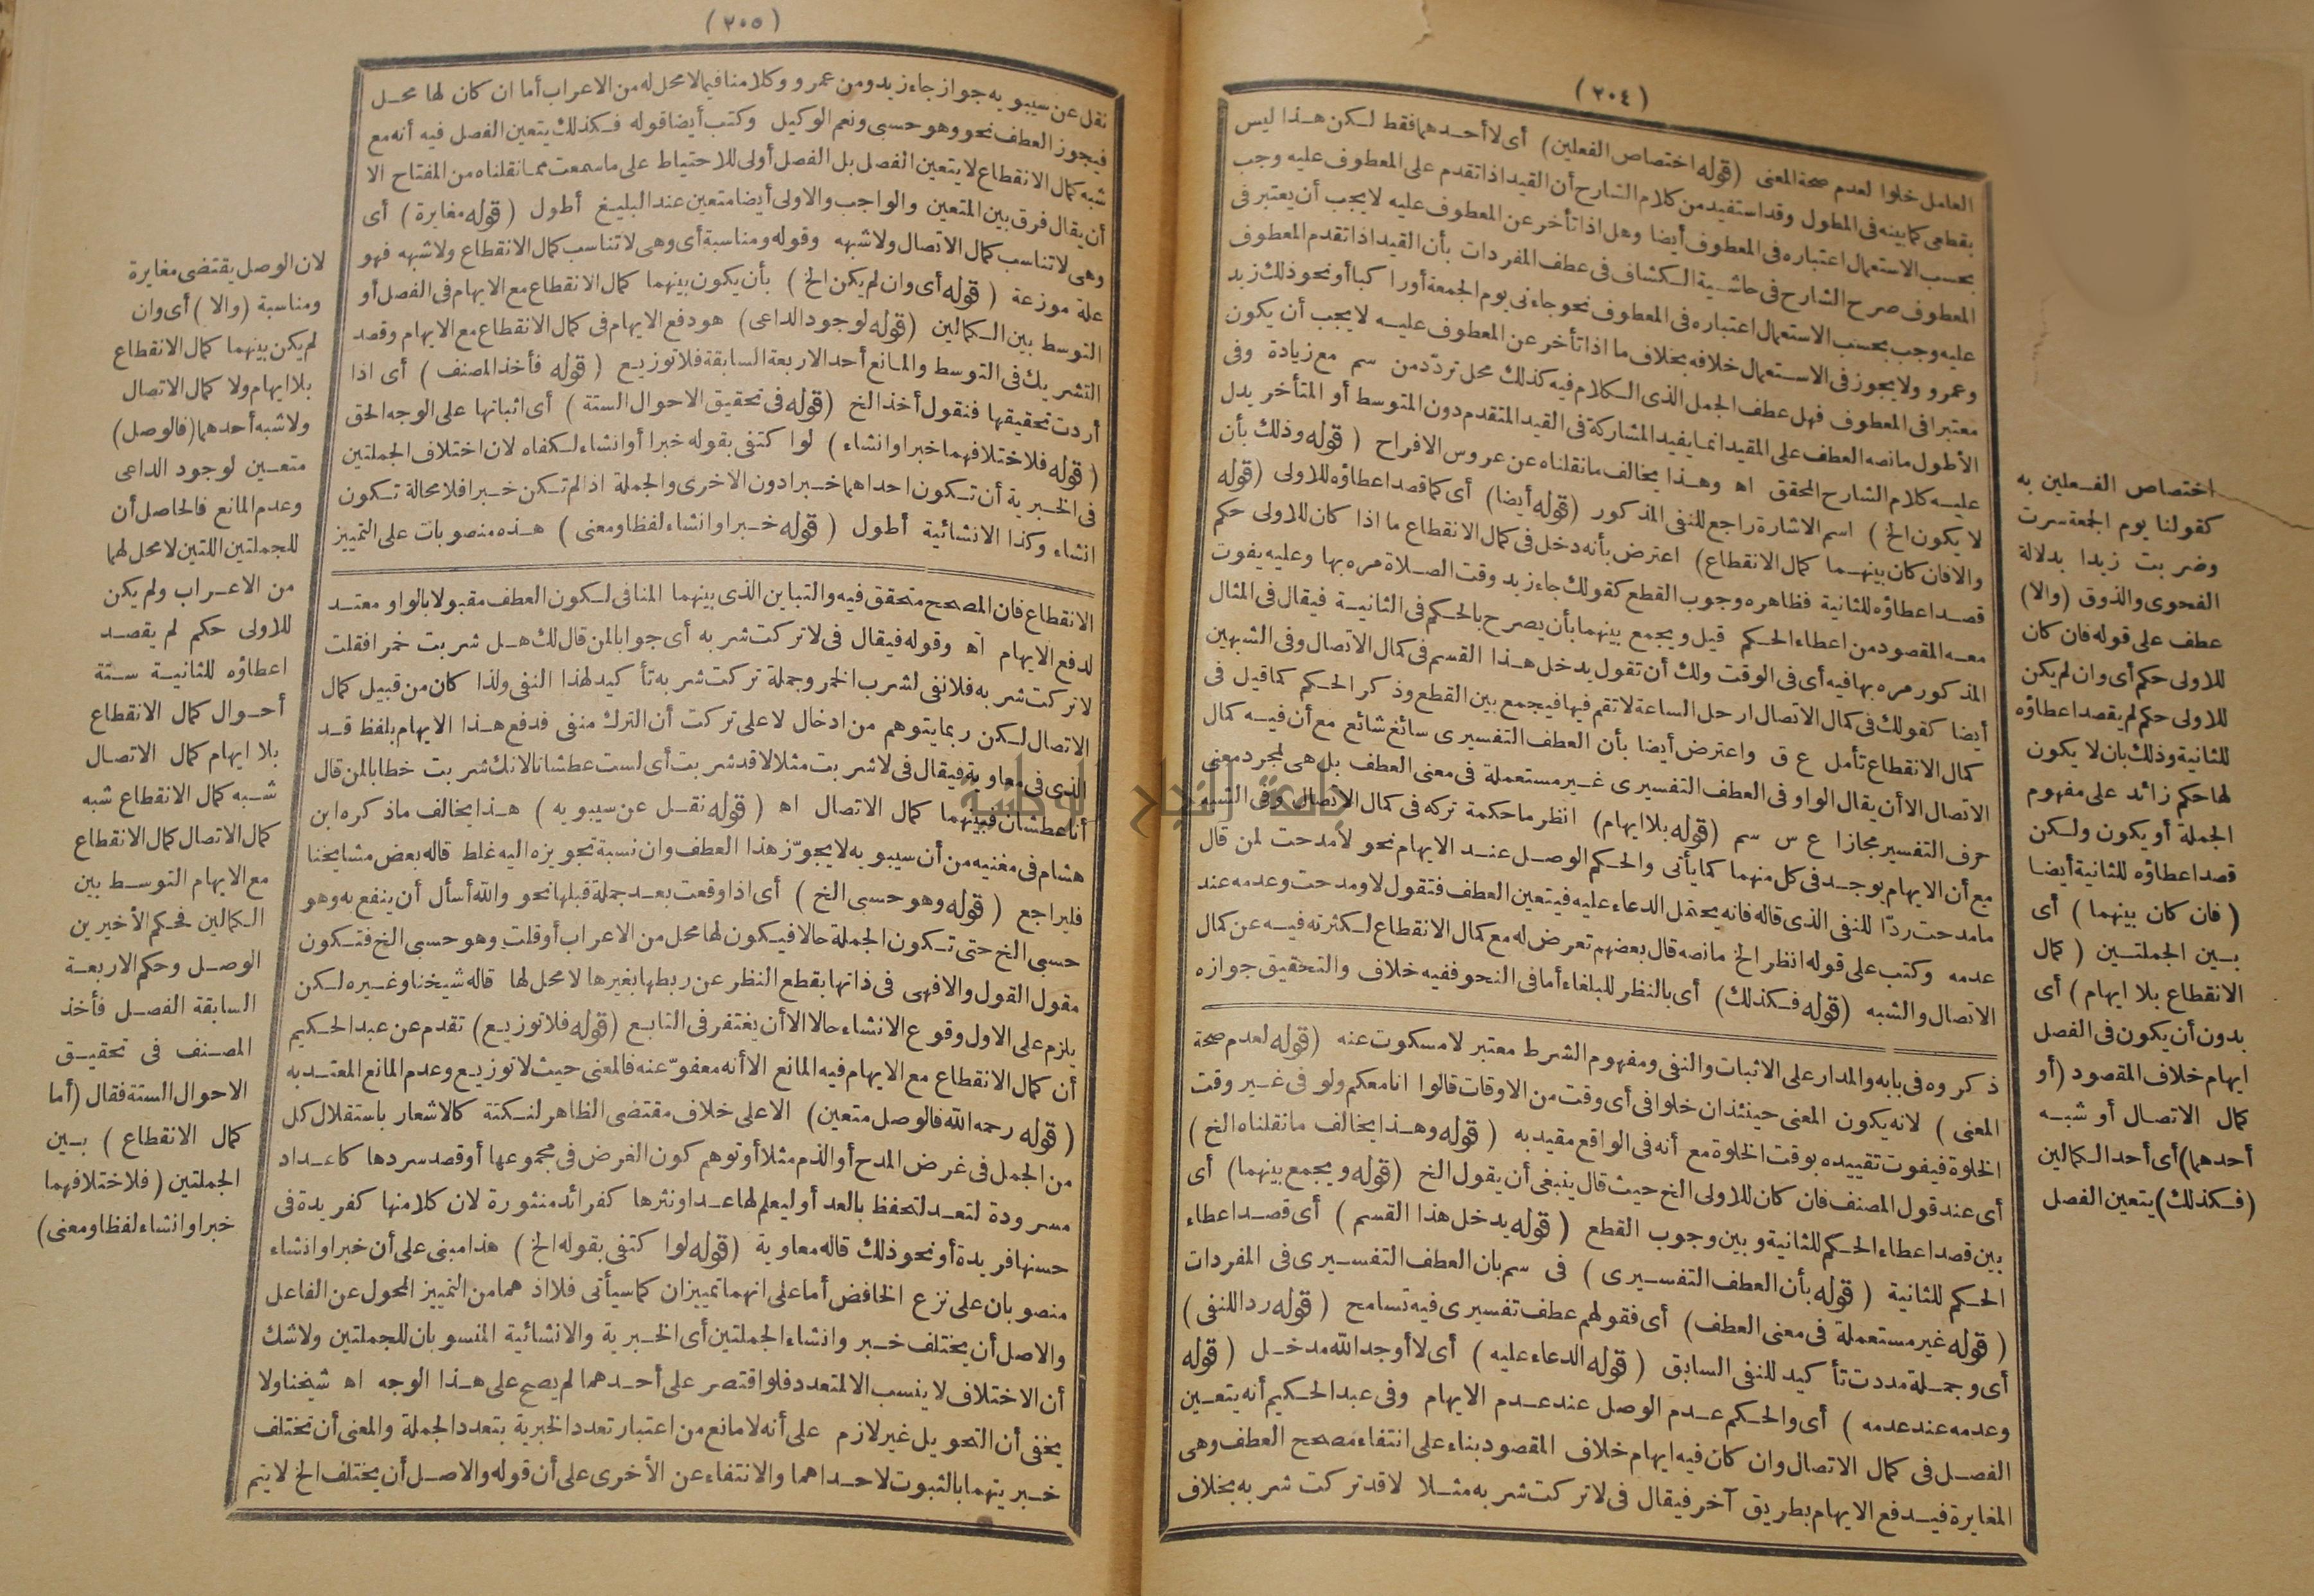 (٢٠٤)
العامل خلوا لعدم صحة المعنى (قوله اختصاص الفعلين) أى لا أحدهما فقط لكن هذا ليس
بقطعى كما بينه فى المطول وقد استفيد من كلام الشارح أن القيد اذا تقدم على المعطوف عليه وجب
بحسب الاستعمال اعتباره فى المعطوف أيضا وهل اذا تأخر عن المعطوف عليه لا يجب أن يعتبر فى
المعطوف صرح الشارح فى حاشية الكشاف فى عطف المفردات بأن القيد اذا تقدم المعطوف
عليه وجب بحسب الاستعمال اعتباره فى المعطوف نحو جاءنى يوم الجمعة أو راكبا أو نحو ذلك زيد
وعمرو ولا يجوز فى الاستعمال خلافه بخلاف ما اذا تأخر عن المعطوف عليه لا يجب أن يكون
معتبرا فى المعطوف فهل عطف الجمل الذى الكلام فيه كذلك محل تردّد من سم مع زيادة وفى
الأطول ما نصه العطف على المقيد انما يفيد المشاركة فى القيد المتقدم دون المتوسط أو المتأخر يدل
عليه كلام الشارح المحقق اه وهذا يخالف ما نقلناه عن عروس الافراح (قوله وذلك بأن
لا يكون الخ) اسم الاشارة راجع للنفى المذكور (قوله أيضا) أى كما قصد اعطاؤه للاولى (قوله
والا فان كان بينهما كمال الانقطاع) اعترض بأنه دخل فى كمال الانقطاع ما اذا كان للاولى حكم
قصد اعطاؤه للثانية فظاهره وجوب القطع كقولك جاء زيد وقت الصلاة مره بها وعليه يفوت
معه المقصود من اعطاء الحكم قيل ويجمع بينهما بأن يصرح بالحكم فى الثانية فيقال فى المثال
المذكور مره بها فيه أى فى الوقت ولك أن تقول يدخل هذا القسم فى كمال الاتصال وفى الشبهين
أيضا كقولك فى كمال الاتصال ارحل الساعة لا تقم فيها فيجمع بين القطع وذكر الحكم كما قيل فى
كمال الانقطاع تأمل ع ق واعترض أيضا بأن العطف التفسيرى سائغ شائع مع أن فيه كمال
الاتصال الا أن يقال الواو فى العطف التفسيرى غير مستعملة فى معنى العطف بل هى لمجرد معنى
حرف التفسير مجازا ع س سم (قوله بلا ايهام) انظر ما حكمة تركه فى كمال الاتصال وفى الشبه
مع أن الايهام يوجد فى كل منهما كما يأتى والحكم الوصل عند الايهام نحو لا مدحت لمن قال
ما مدحت ردّا للنفى الذى قاله فانه يحتمل الدعاء عليه فيتعين العطف فتقول لا ومدحت وعدمه عند
عدمه وكتب على قوله انظر الخ ما نصه قال بعضهم تعرض له مع كمال الانقطاع لكثرته فيه عن كمال
الاتصال والشبه (قوله فكذلك) أى بالنظر للبلغاء أما فى النحو ففيه خلاف والتحقيق جوازه
ذكروه فى بابه والمدار على الاثبات والنفى ومفهوم الشرط معتبر لا مسكوت عنه (قوله لعدم صحة
المعنى) لانه يكون المعنى حينئذ ان خلوا فى أى وقت من الاوقات قالوا انا معكم ولو فى غير وقت
الخلوة فيفوت تقييده بوقت الخلوة مع أنه فى الواقع مقيد به (قوله وهذا يخالف ما نقلناه الخ)
أى عند قول المصنف فان كان للاولى الخ حيث قال ينبغى أن يقول الخ (قوله ويجمع بينهما) أى
بين قصد اعطاء الحكم للثانية وبين وجوب القطع (قوله يدخل هذا القسم) أى قصد اعطاء
الحكم للثانية (قوله بأن العطف التفسيرى) فى سم بان العطف التفسيرى فى المفردات
(قوله غير مستعملة فى معنى العطف) أى فقولهم عطف تفسيرى فيه تسامح (قوله ردا للنفى)
أى وجملة مددت تأكيد للنفى السابق (قوله الدعاء عليه) أى لا أوجد الله مدخل (قوله
وعدمه عند عدمه) أى والحكم عدم الوصل عند عدم الايهام وفى عبد الحكيم أنه يتعين
الفصل فى كمال الاتصال وان كان فيه ايهام خلاف المقصود بناء على انتفاء مصحح العطف وهى
المغايرة فيدفع الايهام بطريق آخر فيقال فى لا تركت شربه مثلا لا قد تركت شربه بخلاف
اختصاص الفعلين به
كقولنا يوم الجمعة سرت
وضربت زيدا بدلالة
الفحوى والذوق (والا)
عطف على قوله فان كان
للاولى حكم أى وان لم يكن
للاولى حكم لم يقصد اعطاؤه
للثانية وذلك بان لا يكون
لها حكم زائد على مفهوم
الجملة أو يكون ولكن
قصد اعطاؤه للثانية أيضا
(فان كان بينهما) أى
بين الجملتين (كمال
الانقطاع بلا ايهام) أى
بدون أن يكون فى الفصل
ايهام خلاف المقصود (أو
كمال الاتصال أو شبه
أحدهما) أى أحد الكمالين
(فكذلك) يتعين الفصل
(٢٠٥)
نقل عن سيبويه جواز جاء زيد ومن عمرو وكلامنا فيما لا محل له من الاعراب أما ان كان لها محل
فيجوز العطف نحو وهو حسبى ونعم الوكيل وكتب أيضا قوله فكذلك يتعين الفصل فيه أنه مع
شبه كمال الانقطاع لا يتعين الفصل بل الفصل أولى للاحتياط على ما سمعت مما نقلناه من المفتاح الا
أن يقال فرق بين المتعين والواجب والاولى أيضا متعين عند البليغ أطول (قوله مغايرة) أى
وهى لا تناسب كمال الاتصال ولا شبهه وقوله ومناسبة أى وهى لا تناسب كمال الانقطاع ولا شبهه فهو
علة موزعة (قوله أى وان لم يكن الخ) بأن يكون بينهما كمال الانقطاع مع الايهام فى الفصل أو
التوسط بين الكمالين (قوله لوجود الداعى) هو دفع الايهام فى كمال الانقطاع مع الايهام وقصد
التشريك فى التوسط والمانع أحد الاربعة السابقة فلا توزيع (قوله فأخذ المصنف) أى اذا
أردت تحقيقها فنقول أخذ الخ (قوله فى تحقيق الاحوال الستة) أى اثباتها على الوجه الحق
(قوله فلاختلافهما خبرا وانشاء) لو اكتفى بقوله خبرا أو انشاء لكفاه لان اختلاف الجملتين
فى الخبرية أن تكون احداهما خبرا دون الاخرى والجملة اذا لم تكن خبرا فلا محالة تكون
انشاء وكذا الانشائية أطول (قوله خبرا وانشاء لفظا ومعنى) هذه منصوبات على التمييز
الانقطاع فان المصحح متحقق فيه والتباين الذى بينهما المنافى لكون العطف مقبولا بالواو معتد
لدفع الايهام اه وقوله فيقال فى لا تركت شربه أى جوابا لمن قال لك هل شربت خمرا فقلت
لا تركت شربه فلا نفى لشرب الخمر وجملة تركت شربه تأكيد لهذا النفى ولذا كان من قبيل كمال
الاتصال لكن ربما يتوهم من ادخال لا على تركت أن الترك منفى فدفع هذا الايهام بلفظ قد
الذى فى معاوية فيقال فى لا شربت مثلا لا قد شربت أى لست عطشانا لانك شربت خطابا لمن قال
أنا عطشان فبينهما كمال الاتصال اه (قوله نقل عن سيبويه) هذا يخالف ما ذكره ابن
هشام فى مغنيه من أن سيبويه لا يجوّز هذا العطف وان نسبة تجويزه اليه غلط قاله بعض مشايخنا
فليراجع (قوله وهو حسبى الخ) أى اذا وقعت بعد جملة قبلها نحو والله أسأل أن ينفع به وهو
حسبى الخ حتى تكون الجملة حالا فيكون لها محل من الاعراب أو قلت وهو حسبى الخ فتكون
مقول القول والا فهى فى ذاتها بقطع النظر عن ربطها بغيرها لا محل لها قاله شيخنا وغيره لكن
يلزم على الاول وقوع الانشاء حالا الا أن يغتفر فى التابع (قوله فلا توزيع) تقدم عن عبد الحكيم
أن كمال الانقطاع مع الايهام فيه المانع الا أنه معفوّ عنه فالمعنى حيث لا توزيع وعدم المانع المعتد به
(قوله رحمه الله فالوصل متعين) الا على خلاف مقتضى الظاهر لنكتة كالاشعار باستقلال كل
من الجمل فى غرض المدح أو الذم مثلا أو توهم كون الغرض فى مجموعها أو قصد سردها كاعداد
مسرودة لتعد لتحفظ بالعد أو ليعلم لها عدا ونثرها كفرائد منثورة لان كلا منها كفريدة فى
حسنها فريدة أو نحو ذلك قاله معاوية (قوله لو اكتفى بقوله الخ) هذا مبنى على أن خبرا وانشاء
منصوبان على نزع الخافض أما على انهما تمييزان كما سيأتى فلا اذ هما من التمييز المحول عن الفاعل
والاصل أن يختلف خبر وانشاء الجملتين أى الخبرية والانشائية المنسوبان للجملتين ولا شك
أن الاختلاف لا ينسب الا لمتعدد فلو اقتصر على أحدهما لم يصح على هذا الوجه اه شيخنا ولا
يخفى أن التحويل غير لازم على أنه لا مانع من اعتبار تعدد الخبرية بتعدد الجملة والمعنى أن تختلف
خبريتهما بالثبوت لاحداهما والانتفاء عن الأخرى على أن قوله والاصل أن يختلف الخ لا يتم
لان الوصل يقتضى مغايرة
ومناسبة (والا) أى وان
لم يكن بينهما كمال الانقطاع
بلا ايهام ولا كمال الاتصال
ولا شبه أحدهما (فالوصل)
متعين لوجود الداعى
وعدم المانع فالحاصل أن
للجملتين اللتين لا محل لهما
من الاعراب ولم يكن
للاولى حكم لم يقصد
اعطاؤه للثانية ستة
أحوال كمال الانقطاع
بلا ايهام كمال الاتصال
شبه كمال الانقطاع شبه
كمال الاتصال كمال الانقطاع
مع الايهام التوسط بين
الكمالين فحكم الأخيرين
الوصل وحكم الاربعة
السابقة الفصل فأخذ
المصنف فى تحقيق
الاحوال الستة فقال (أما
كمال الانقطاع) بين
الجملتين (فلاختلافهما
خبرا وانشاء لفظا ومعنى)